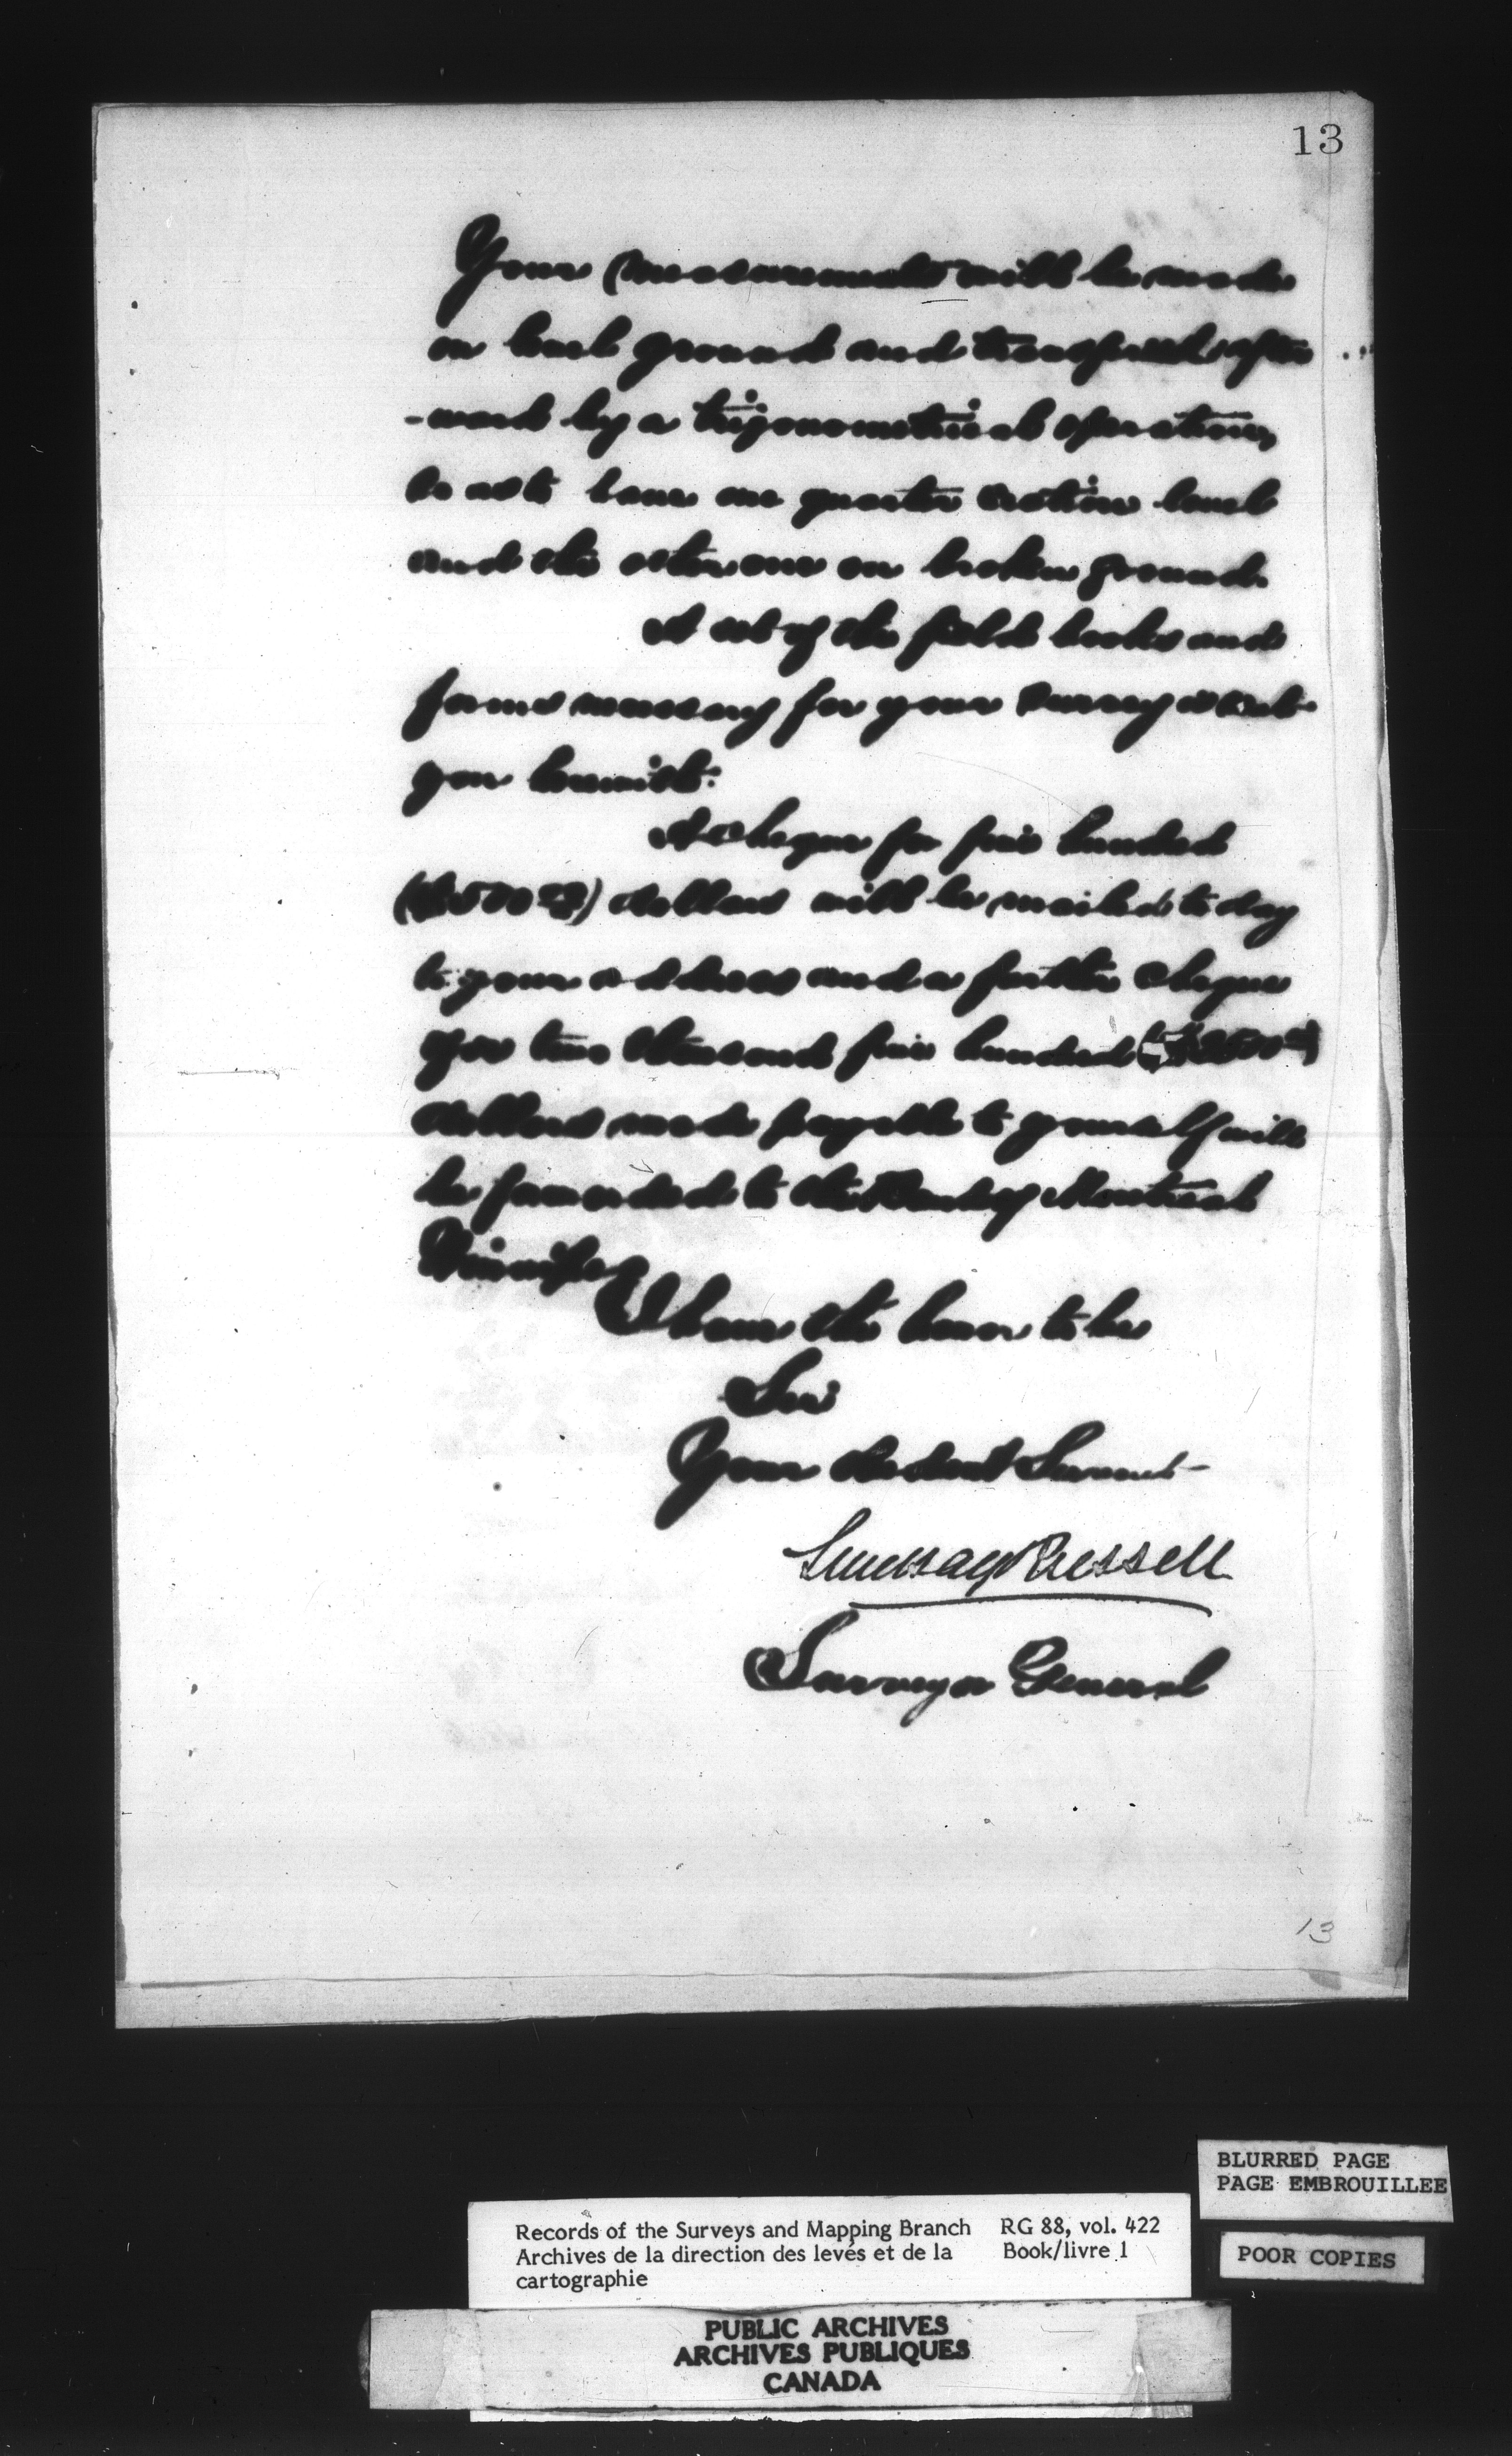 13
Your measurements will be made
on level ground and transferred after
-ward by a trigonometrical operation,
so as to have one quarter section level
and the other one on broken ground.
A set of the field books and
forms necessary for your survey is sent
you herewith.
A cheque for five hundred
($500.00) dollars will be mailed to day
to your address and a further cheque
for two thousand five hundred ($2500.00)
dollars made payable to yourself will
be forwarded to the Bank of Montreal
Winnipeg
I have the honor to be
Sir
Your obedient Servant
Lindsay Russell
Surveyor General
13
BLURRED PAGE
PAGE EMBROUILLEE
POOR COPIES
Records of the Surveys and Mapping Branch RG 88, vol. 422
Archives de la direction des levés et de la Book/livre 1
cartographie
PUBLIC ARCHIVES
ARCHIVES PUBLIQUES
CANADA